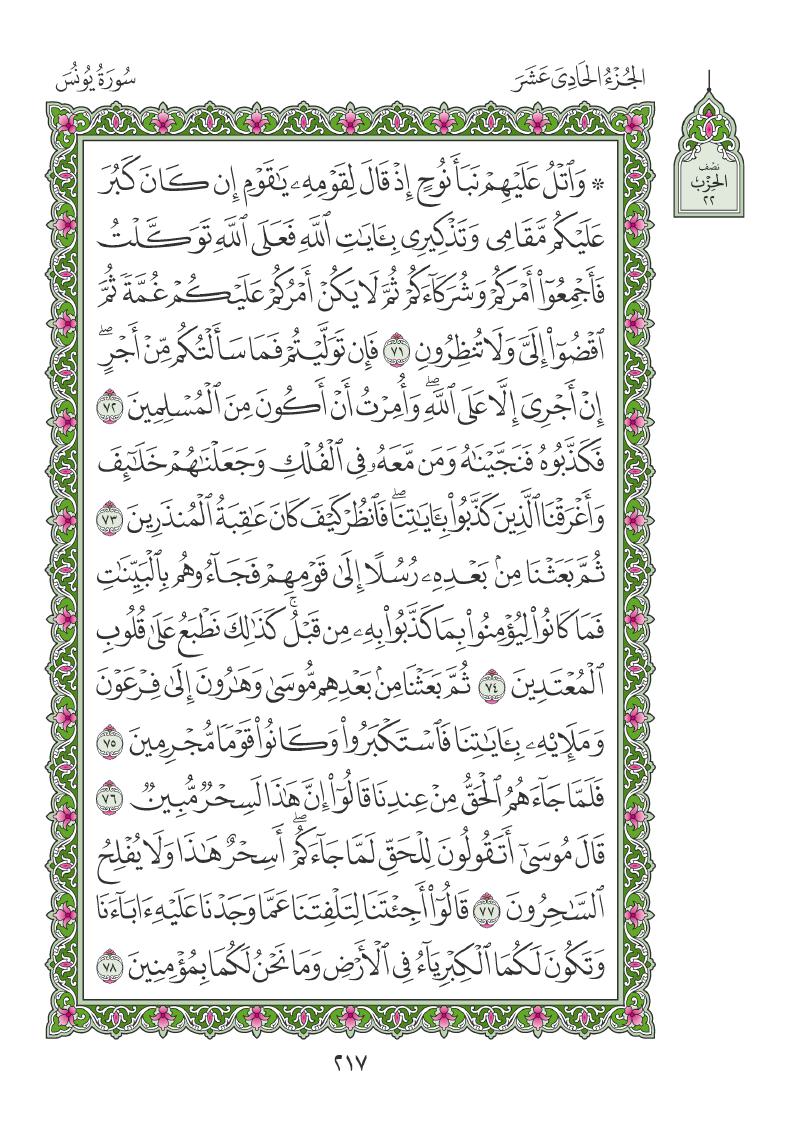 الجُزْءُ الحَادِى عَشَرَ
سُورَةُ يُونُسَ
نصف
الحِزْب
٢٢
۞ وَٱتْلُ عَلَيْهِمْ نَبَأَ نُوحٍ إِذْ قَالَ لِقَوْمِهِۦ يَٰقَوْمِ إِن كَانَ كَبُرَ
عَلَيْكُم مَّقَامِى وَتَذْكِيرِى بِـَٔايَٰتِ ٱللَّهِ فَعَلَى ٱللَّهِ تَوَكَّلْتُ
فَأَجْمِعُوٓا۟ أَمْرَكُمْ وَشُرَكَآءَكُمْ ثُمَّ لَا يَكُنْ أَمْرُكُمْ عَلَيْكُمْ غُمَّةً ثُمَّ
ٱقْضُوٓا۟ إِلَىَّ وَلَا تُنظِرُونِ ٧١ فَإِن تَوَلَّيْتُمْ فَمَا سَأَلْتُكُم مِّنْ أَجْرٍ ۖ
إِنْ أَجْرِىَ إِلَّا عَلَى ٱللَّهِ ۖ وَأُمِرْتُ أَنْ أَكُونَ مِنَ ٱلْمُسْلِمِينَ ٧٢
فَكَذَّبُوهُ فَنَجَّيْنَٰهُ وَمَن مَّعَهُۥ فِى ٱلْفُلْكِ وَجَعَلْنَٰهُمْ خَلَٰٓئِفَ
وَأَغْرَقْنَا ٱلَّذِينَ كَذَّبُوا۟ بِـَٔايَٰتِنَا ۖ فَٱنظُرْ كَيْفَ كَانَ عَٰقِبَةُ ٱلْمُنذَرِينَ ٧٣
ثُمَّ بَعَثْنَا مِنۢ بَعْدِهِۦ رُسُلًا إِلَىٰ قَوْمِهِمْ فَجَآءُوهُم بِٱلْبَيِّنَٰتِ
فَمَا كَانُوا۟ لِيُؤْمِنُوا۟ بِمَا كَذَّبُوا۟ بِهِۦ مِن قَبْلُ ۚ كَذَٰلِكَ نَطْبَعُ عَلَىٰ قُلُوبِ
ٱلْمُعْتَدِينَ ٧٤ ثُمَّ بَعَثْنَا مِنۢ بَعْدِهِم مُّوسَىٰ وَهَٰرُونَ إِلَىٰ فِرْعَوْنَ
وَمَلَإِي۟هِۦ بِـَٔايَٰتِنَا فَٱسْتَكْبَرُوا۟ وَكَانُوا۟ قَوْمًا مُّجْرِمِينَ ٧٥
فَلَمَّا جَآءَهُمُ ٱلْحَقُّ مِنْ عِندِنَا قَالُوٓا۟ إِنَّ هَٰذَا لَسِحْرٌ مُّبِينٌ ٧٦
قَالَ مُوسَىٰٓ أَتَقُولُونَ لِلْحَقِّ لَمَّا جَآءَكُمْ ۖ أَسِحْرٌ هَٰذَا وَلَا يُفْلِحُ
ٱلسَّٰحِرُونَ ٧٧ قَالُوٓا۟ أَجِئْتَنَا لِتَلْفِتَنَا عَمَّا وَجَدْنَا عَلَيْهِ ءَابَآءَنَا
وَتَكُونَ لَكُمَا ٱلْكِبْرِيَآءُ فِى ٱلْأَرْضِ وَمَا نَحْنُ لَكُمَا بِمُؤْمِنِينَ ٧٨
٢١٧